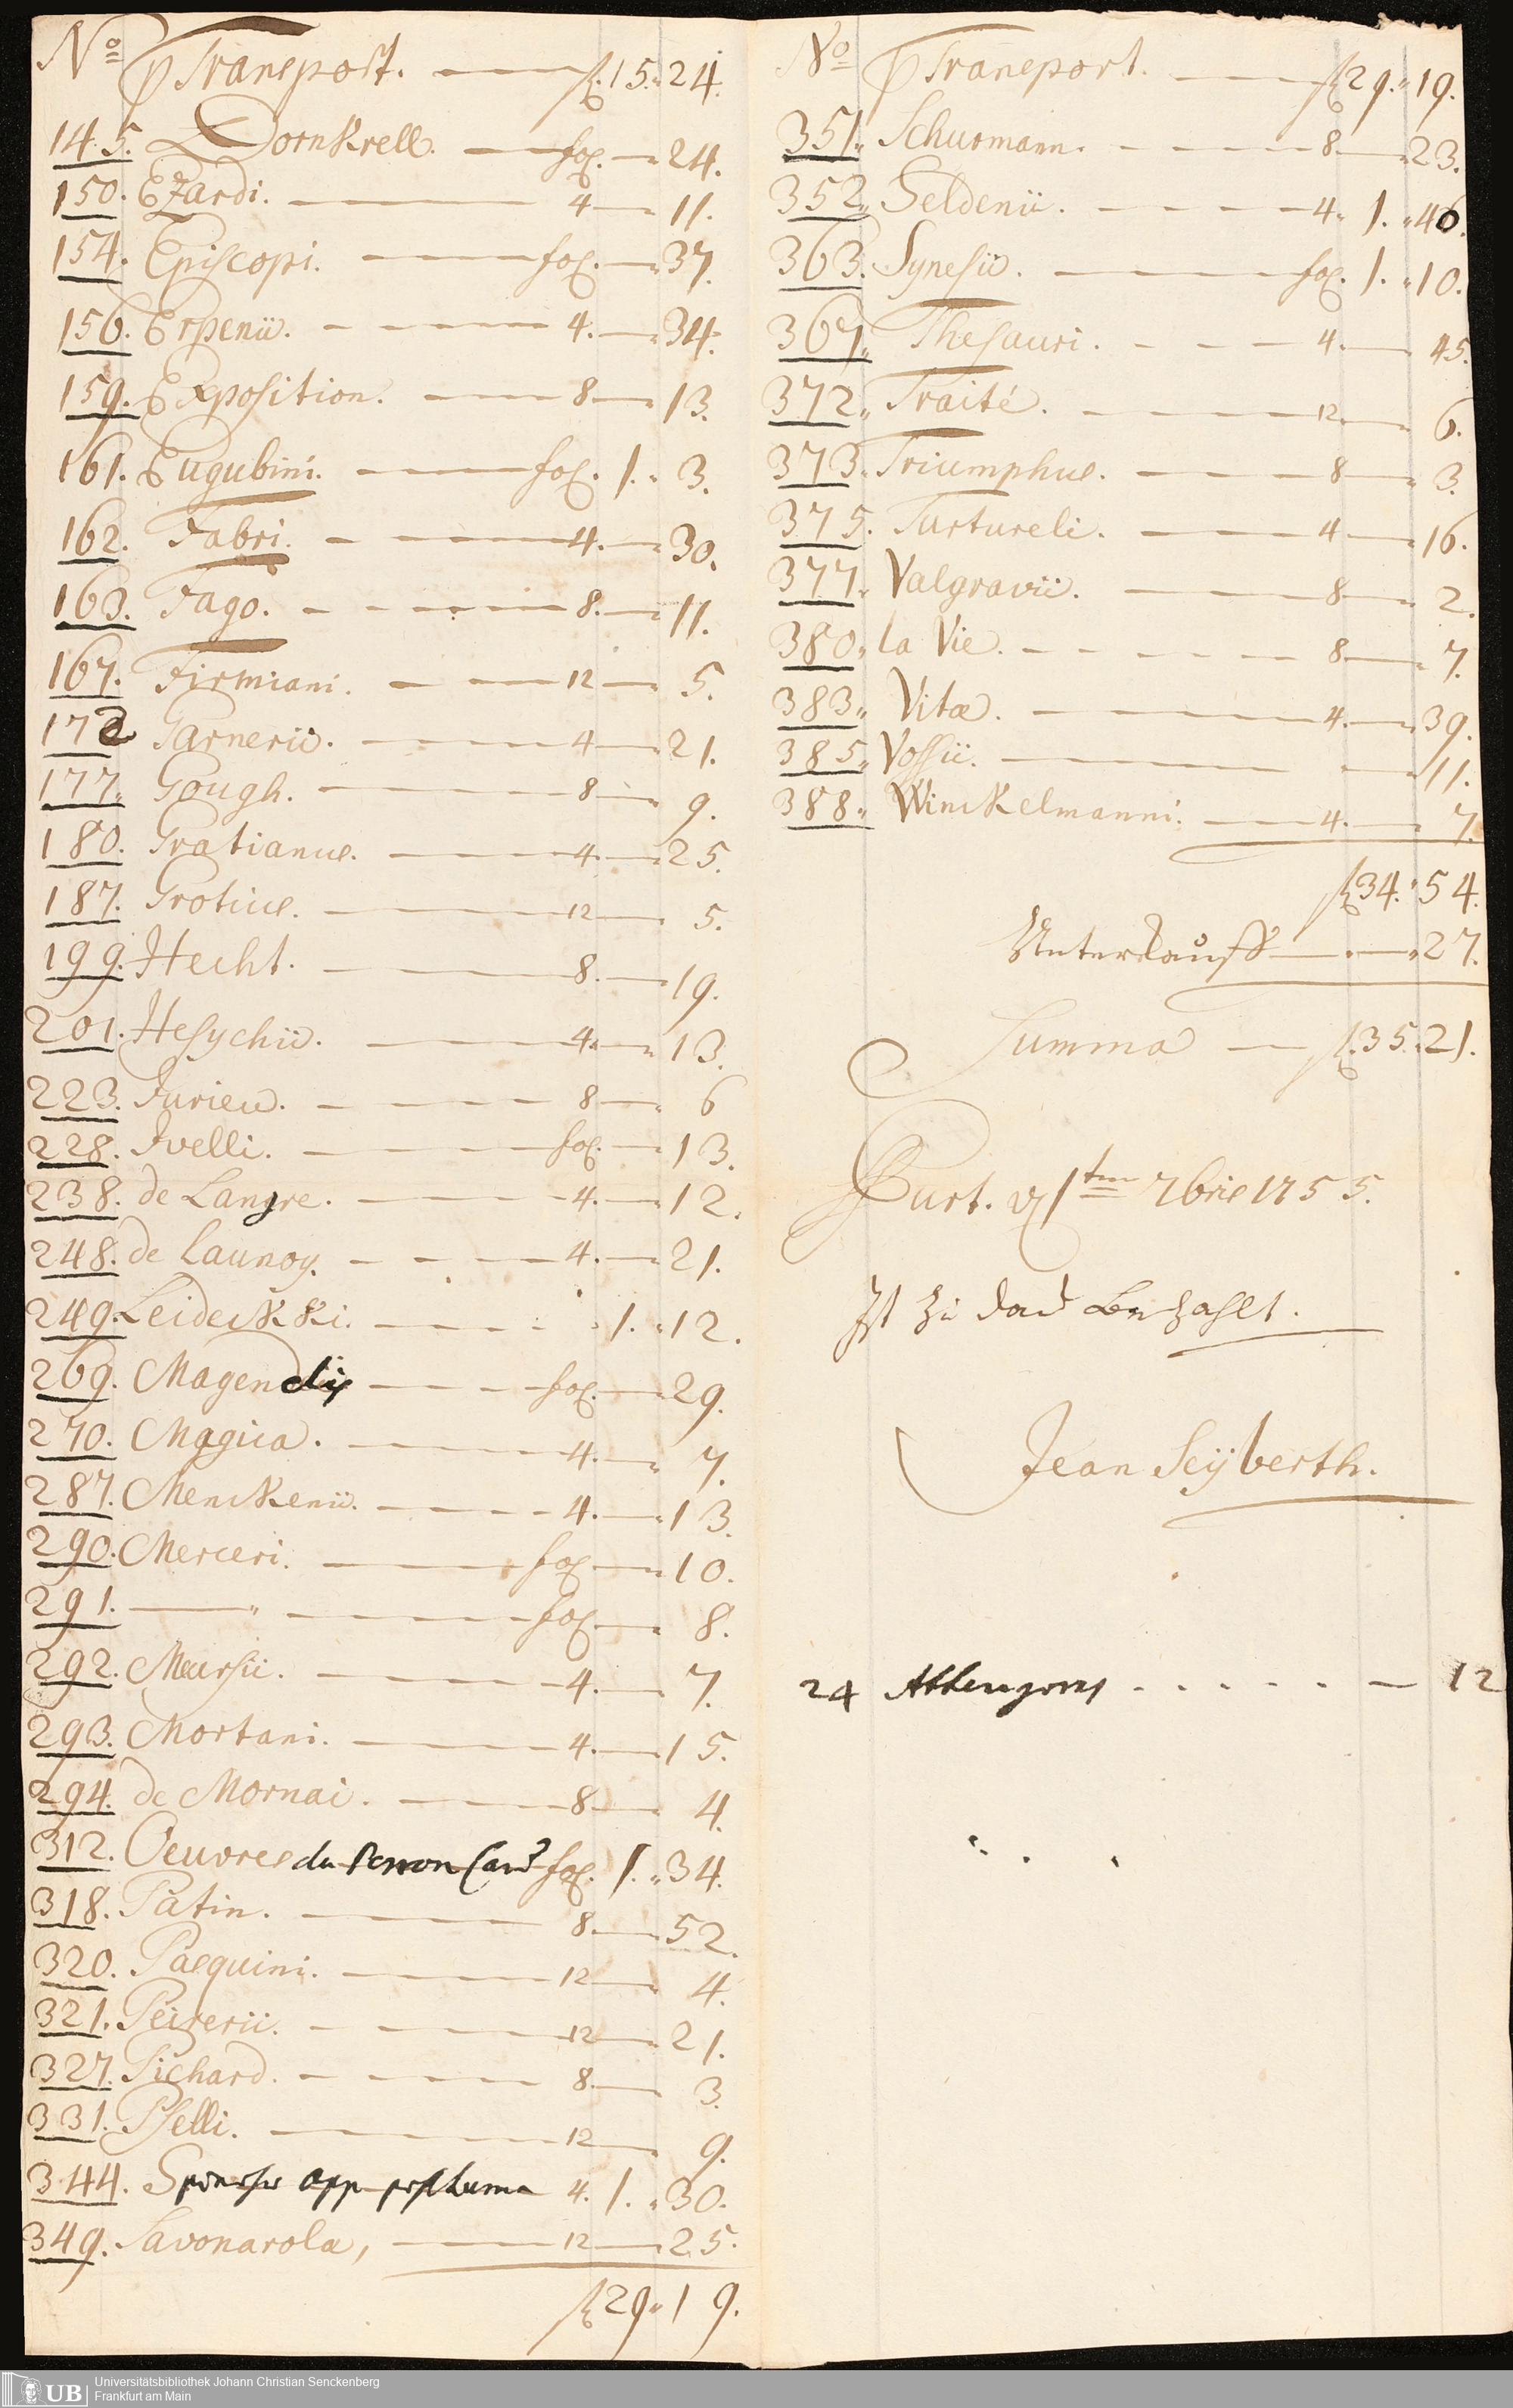 No p Transport. fl. 15. 24.
145. Dornkrell. fol. 24.
150. Ezardi. 4 11.
154. Episcopi. fol. 37.
156. Erpenii. 4. 34.
159. Exposition. 8 13.
161. Eugubini. fol. 1. 3.
162. Fabri. 4. 30.
163. Fago. 8. 11.
167. Firmiani. 12 5.
172 Garnerii. 4 21.
177. Gough. 8 9.
180. Gratianus. 4. 25.
187. Grotius. 12 5.
199. Hecht. 8. 19.
201. Hesychii. 4. 13.
223. Jurieu. 8 6
228. Ivelli. fol. 13.
238. de Langre. 4. 12.
248. de Launoy. 4. 21.
249. Leideckki. 1. 12.
269. Magendis fol. 29.
270. Magica. 4. 7.
287. Menckenii. 4. 13.
290. Merceri. fol. 10.
291. — " fol. 8.
292. Meursii. 4. 7.
293. Mortani. 4. 15.
294. de Mornai. 8 4.
312. Oeuvres du Perron Card fol. 1. 34.
318. Patin. 8. 52.
320. Pasquini. 12 4.
321. Peirerii. 12 21.
327. Pichard. 8. 3.
331. Pselli. 12 9.
344. Spinosae opp. posthuma 4. 1. 30.
349. Savonarola, 12 25.
fl 29. 19.
No p Transport. fl 29. 19.
351. Schurmann. 8 23.
352. Seldenii. 4. 1. 46.
363. Synesii. fol. 1. 10.
367. Thesauri. 4. 45.
372. Traité. 12 6.
373. Triumphus. 8 3.
375. Turtureli. 4 16.
377. Valgravii. 8 2.
380. la Vie. 8 7.
383. Vitæ. 4. 39.
385. Vossii. 11.
388. Winckelmanni. 4. 7.
fl 34. 54.
Unterkauff 27.
Summa fl. 35. 21.
Furt. d 1tm 7bris 1755.
Ist zu danck bezahlt.
Jean Seÿberth.
24 12
UB Universitätsbibliothek Johann Christian Senckenberg
Frankfurt am Main